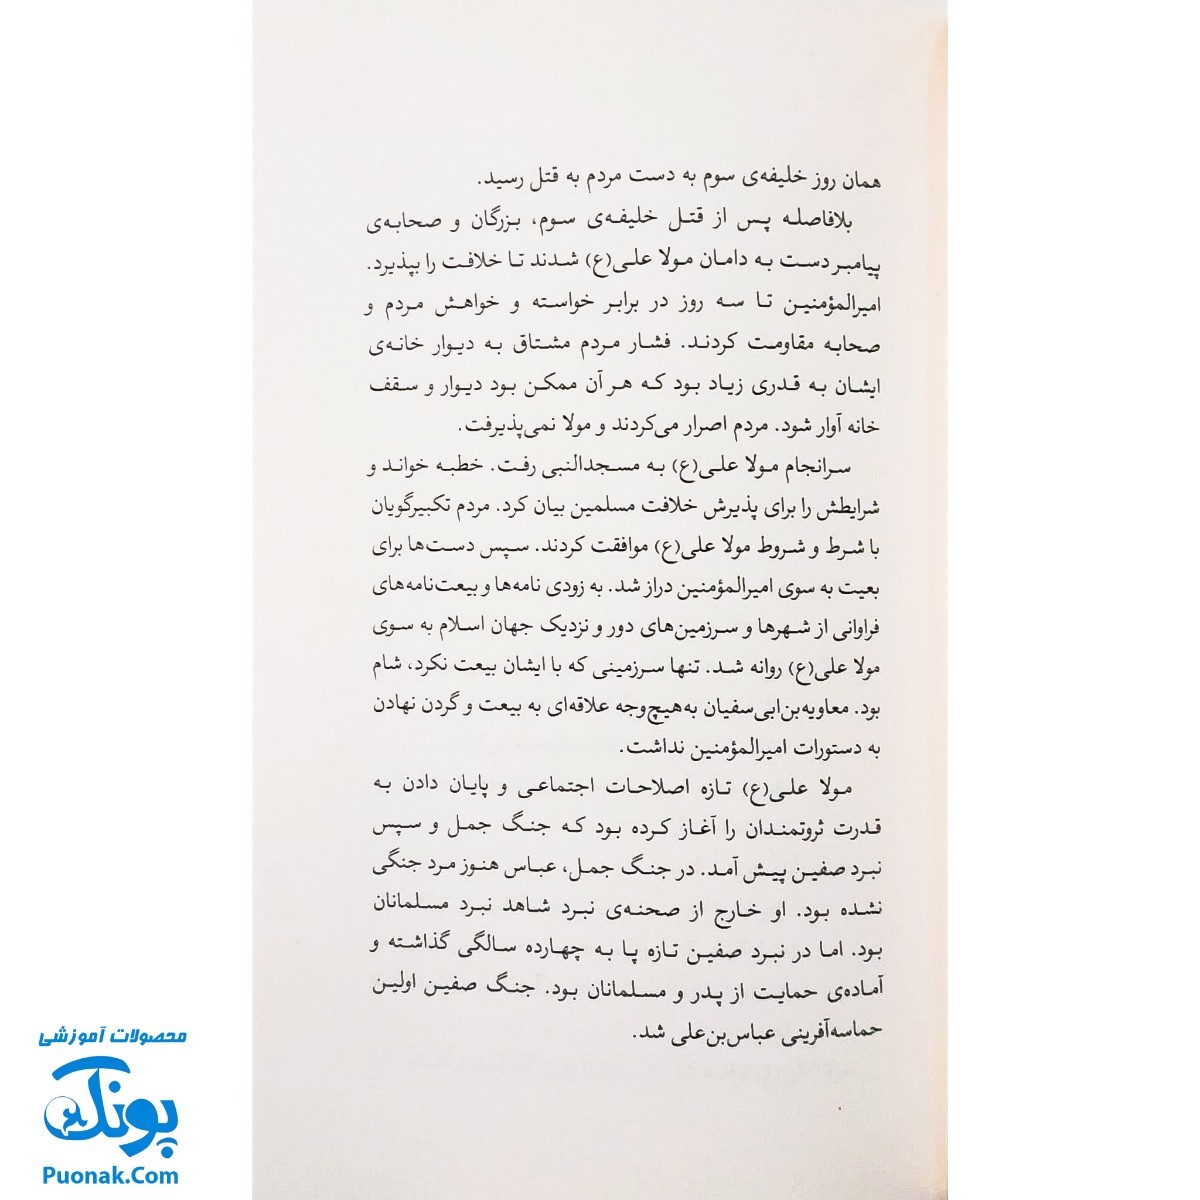 همان روز خلیفه‌ی سوم به دست مردم به قتل رسید.
بلافاصله پس از قتل خلیفه‌ی سوم، بزرگان و صحابه‌ی
پیامبر دست به دامان مولا علی(ع) شدند تا خلافت را بپذیرد.
امیرالمؤمنین تا سه روز در برابر خواسته و خواهش مردم و
صحابه مقاومت کردند. فشار مردم مشتاق به دیوار خانه‌ی
ایشان به قدری زیاد بود که هر آن ممکن بود دیوار و سقف
خانه آوار شود. مردم اصرار می‌کردند و مولا نمی‌پذیرفت.
سرانجام مولا علی(ع) به مسجدالنبی رفت. خطبه خواند و
شرایطش را برای پذیرش خلافت مسلمین بیان کرد. مردم تکبیرگویان
با شرط و شروط مولا علی(ع) موافقت کردند. سپس دست‌ها برای
بعیت به سوی امیرالمؤمنین دراز شد. به زودی نامه‌ها و بیعت‌نامه‌های
فراوانی از شهرها و سرزمین‌های دور و نزدیک جهان اسلام به سوی
مولا علی(ع) روانه شد. تنها سرزمینی که با ایشان بیعت نکرد، شام
بود. معاویه‌بن‌ابی‌سفیان به‌هیچ‌وجه علاقه‌ای به بیعت و گردن نهادن
به دستورات امیرالمؤمنین نداشت.
مولا علی(ع) تازه اصلاحات اجتماعی و پایان دادن به
قدرت ثروتمندان را آغاز کرده بود که جنگ جمل و سپس
نبرد صفین پیش آمد. در جنگ جمل، عباس هنوز مرد جنگی
نشده بود. او خارج از صحنه‌ی نبرد شاهد نبرد مسلمانان
بود. اما در نبرد صفین تازه پا به چهارده سالگی گذاشته و
آماده‌ی حمایت از پدر و مسلمانان بود. جنگ صفین اولین
حماسه‌آفرینی عباس‌بن‌علی شد.
محصولات آموزشی
پونک
Puonak.Com